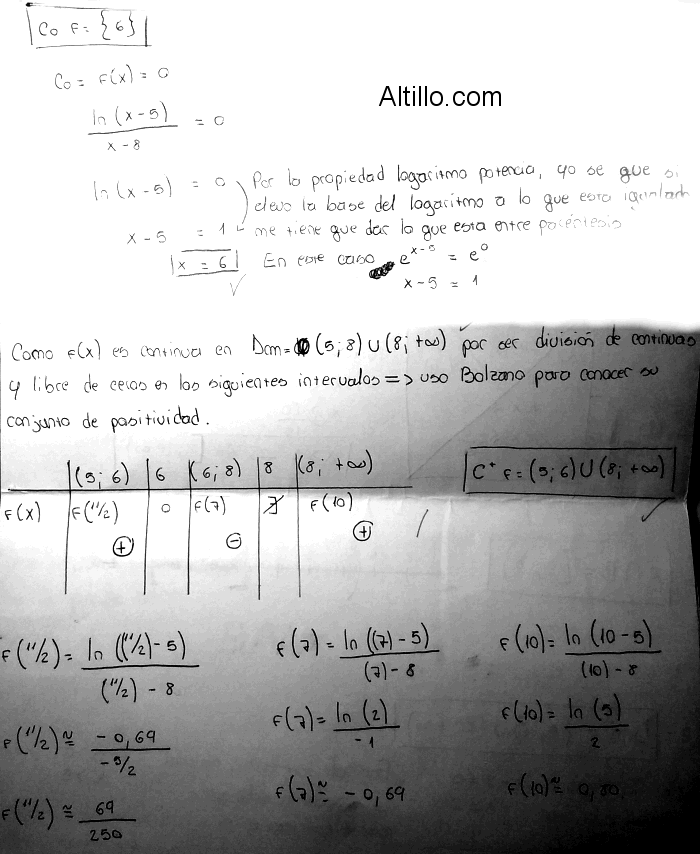 Co F = {6}
Co = F(x) = 0
Altillo.com
ln (x-5) / x-8 = 0
ln (x-5) = 0
x-5 = 1
x = 6
Por la propiedad logaritmo potencia, yo se que si
elevo la base del logaritmo a lo que esta igualado
me tiene que dar lo que esta entre paréntesis
En este caso e^x-5 = e^0
x-5 = 1
Como F(x) es continua en Dom = (5; 8) ∪ (8; +∞) por ser división de continuas
y libre de ceros en los siguientes intervalos => uso Bolzano para conocer su
conjunto de positividad.
(5; 6) 6 (6; 8) 8 (8; +∞)
F(x) F(11/2) 0 F(7) ∄ F(10)
+ - +
C+ F = (5; 6) ∪ (8; +∞)
F(11/2) = ln ((11/2)-5) / (11/2) - 8
F(7) = ln ((7)-5) / (7)-8
F(10) = ln (10-5) / (10)-8
F(11/2) ≅ -0,69 / -5/2
F(7) = ln (2) / -1
F(10) = ln (5) / 2
F(11/2) ≅ 69 / 250
F(7) ≅ -0,69
F(10) ≅ 0,80